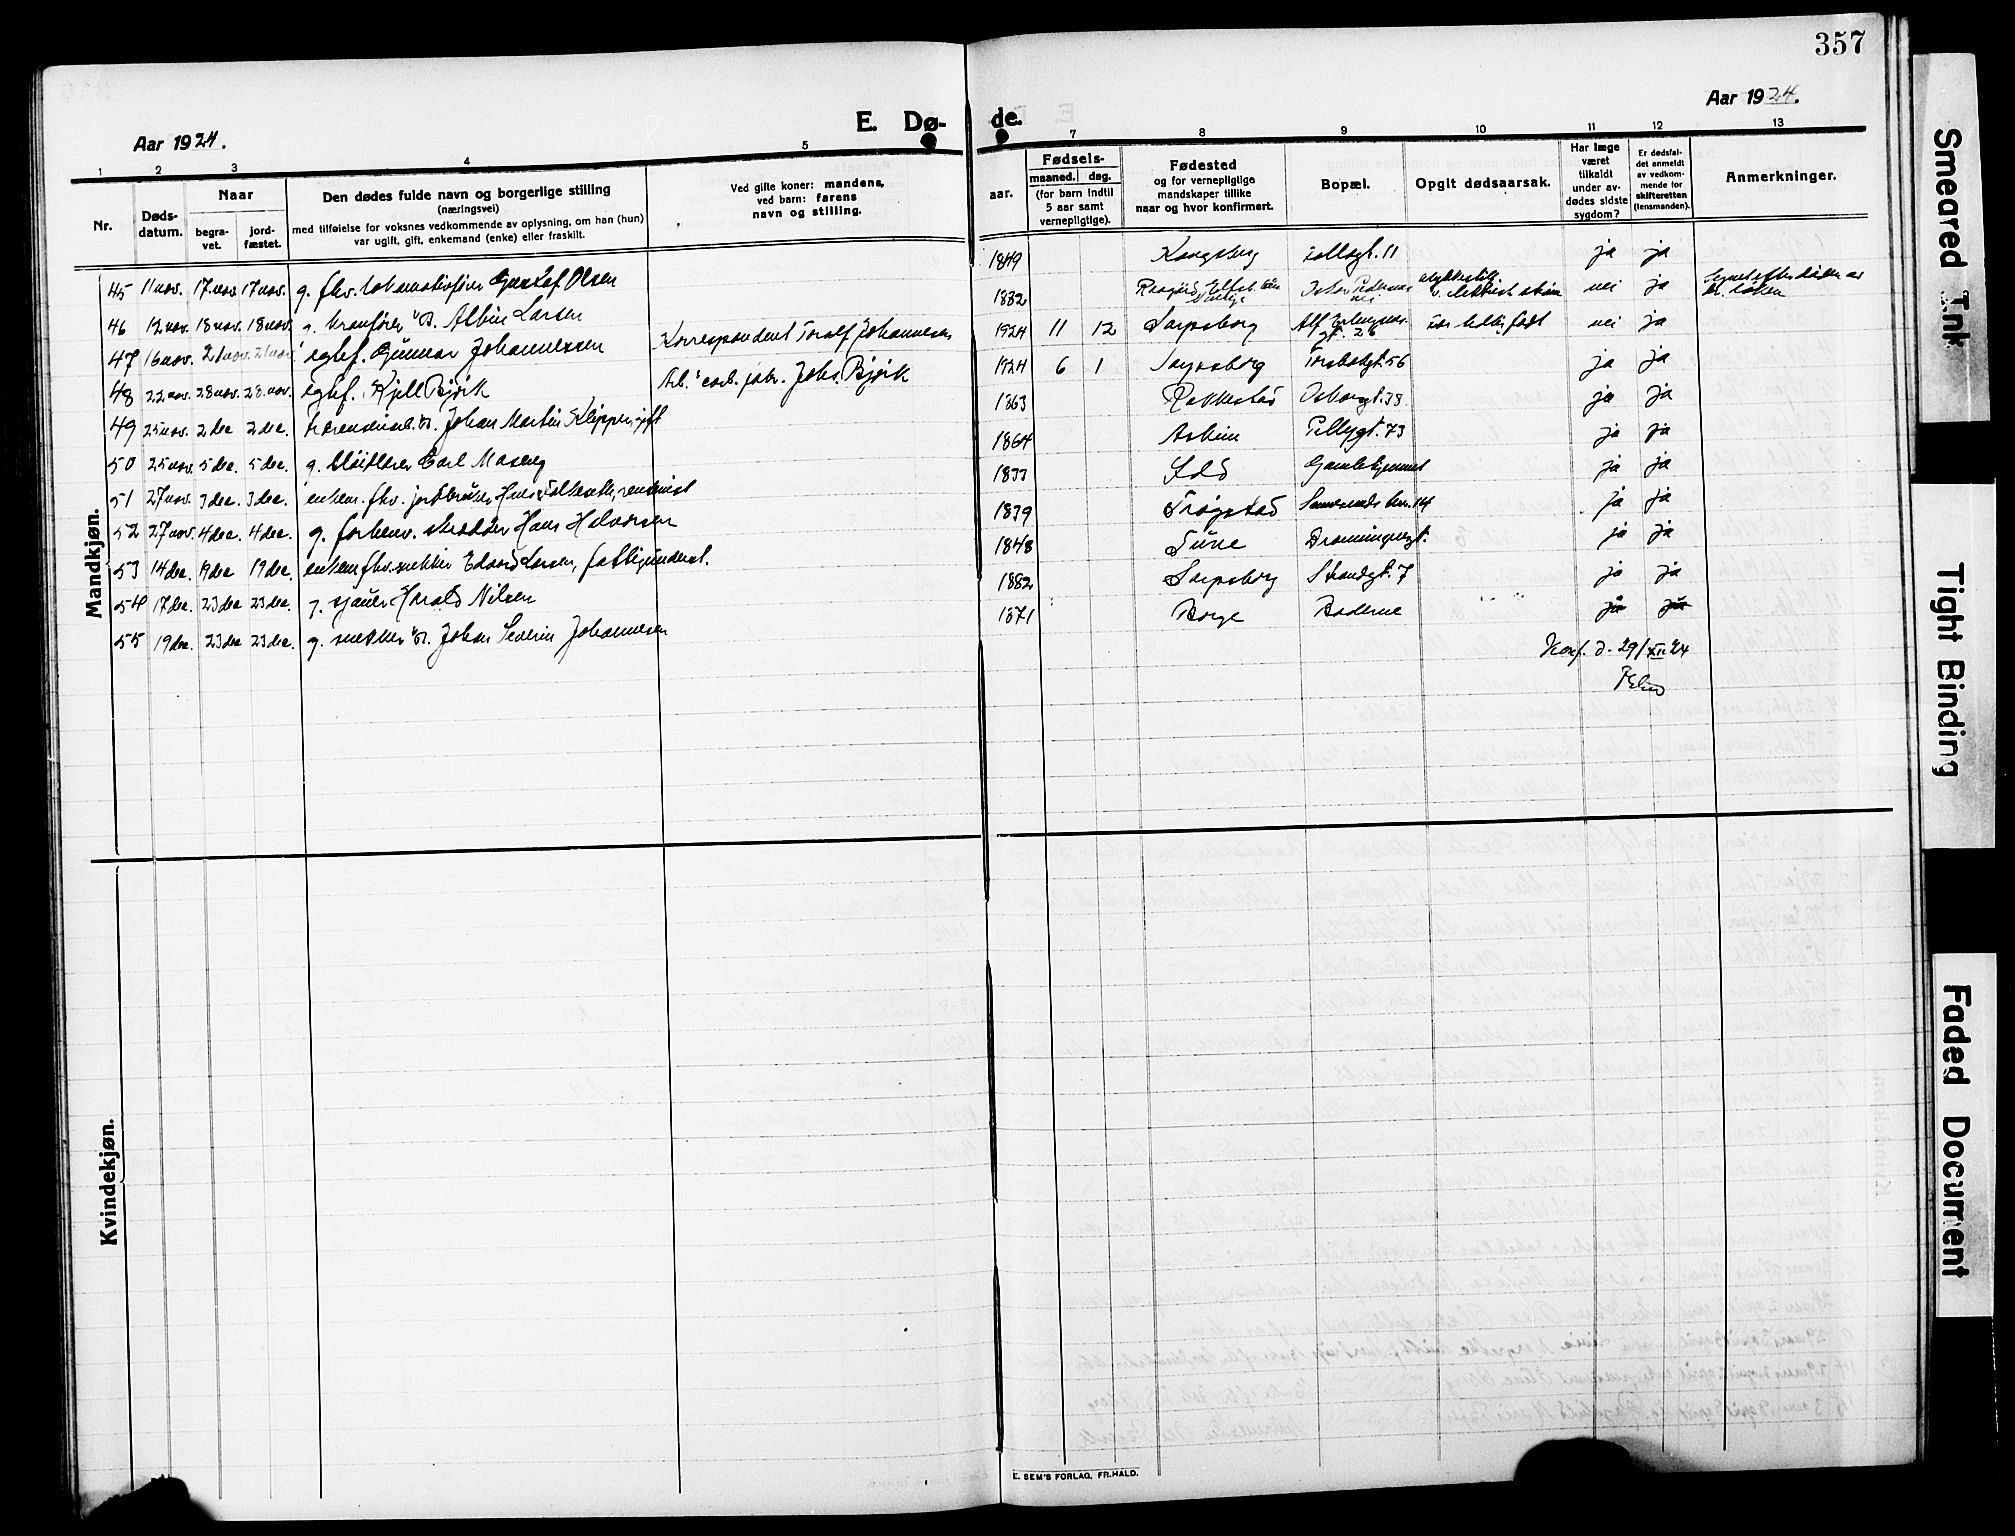 357
Aar 1924.
E. Dø-
de.
Aar 1924.
1 2 3 4 5
7 8 9 10 11 12 13
Nr.
Døds-
datum.
Naar
begra-
vet.
jord-
fæstet.
Den dødes fulde navn og borgerlige stilling
(næringsvei)
med tilføielse for voksnes vedkommende av oplysning, om han (hun)
var ugift, gift, enkemand (enke) eller fraskilt.
Ved gifte koner: mandens,
ved barn: farens
navn og stilling.
Fødsels-
aar.
maaned. dag.
(for barn indtil
5 aar samt
vernepligtige).
Fødested
og for vernepligtige
mandskaper tillike
naar og hvor konfirmert.
Bopæl.
Opgit dødsaarsak.
Har læge
været
tilkaldt
under av-
dødes sidste
sygdom?
Er dødsfal-
det anmeldt
av vedkom-
mende for
skifteretten
(lensmanden).
Anmerkninger.
Mandkjøn.
45 11 nov. 17. nov 17 nov. g. fhv. lokomotivfører Gustaf Olsen 1849 Kongsberg tollbgt. 11 ja ja
46 12 nov. 18 nov. 18 nov. g. kranfører Albin Larsen 1882 nei ja
47 16 nov. 21 nov. 21 nov. egtef. Gunnar Johannessen Korrespondent Toralf Johannessen 1924 11 12 Sarpsborg gt. 26 født nei ja
48 22 nov. 28 nov. 28. nov. egtef. Kjell Bjørk Arb. carb. fabr. Johs. Bjørk 1924 6 1 Sarpsborg Torsbekgt. 56 ja ja
49 25 nov. 2 dec 2 dec. Johan Martin Klipper, gift 1863 Rakkestad Oskargt. 38. ja ja
50 25 nov. 5 dec. 5 dec. g. Carl Moseng 1864 Askim Pellygt. 73 ja ja
51 27 nov. 3 dec. 3 dec. enkem. fhv. jordbruker Hans 1833 Idd Gamlehjemmet ja ja
52 27 nov. 4 dec. 4 dec. g. forhenv. skrædder Hans Halvorsen 1839 Trøgstad 14 ja ja
53 14 dec. 19 dec 19 dec. enkem fhv. snekker Edvard Larsen, fattigunderst. 1848 Tune Dronningensgt. ja ja
54 17 dec. 23 dec 23 dec. g. sjauer Harald Nilsen 1882 Sarpsborg Strandgt. 7 ja ja
55 19 dec. 23 dec 23 dec. g. snekker Johan Severin Johannesen 1871 Borge Baderne ja ja
Konf. d. 29/XII 24
Kvindekjøn.
E. SEM'S FORLAG, FR.HALD.
Smeared Ink
Tight Binding
Faded Document